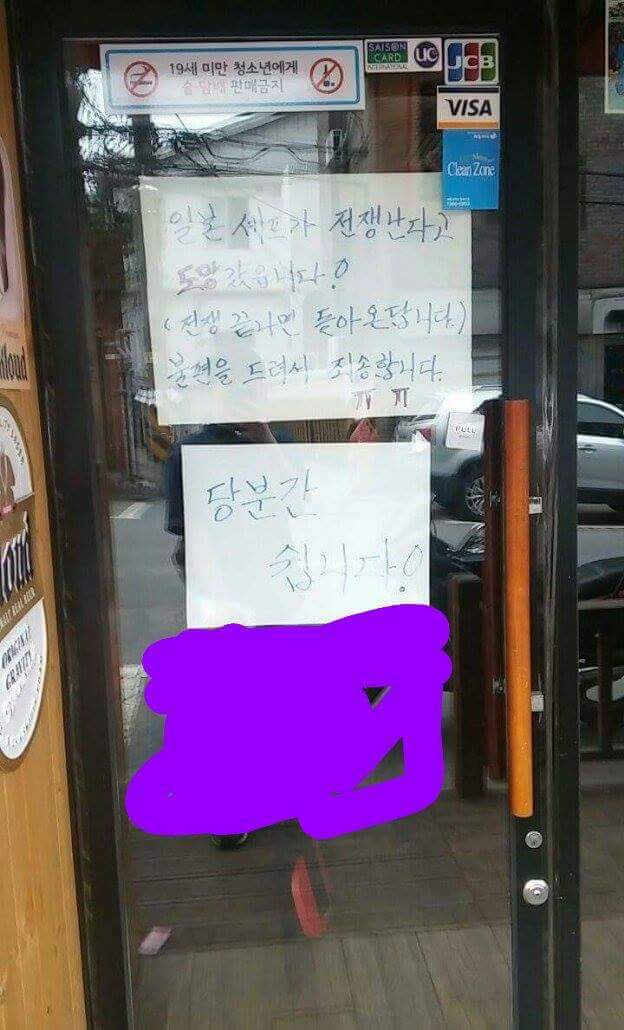 19세 미만 청소년에게
술·담배 판매금지
SAISON
CARD
INTERNATIONAL
UC
JCB
VISA
Clean Zone
일본 셰프가 전쟁난다고
도망 갔읍니다!
(전쟁 끝나면 돌아온답니다.)
불편을 드려서 죄송합니다.
ㅠ ㅠ
PULL
당분간
쉽니다!
Kloud
ORIGINAL
GRAVITY